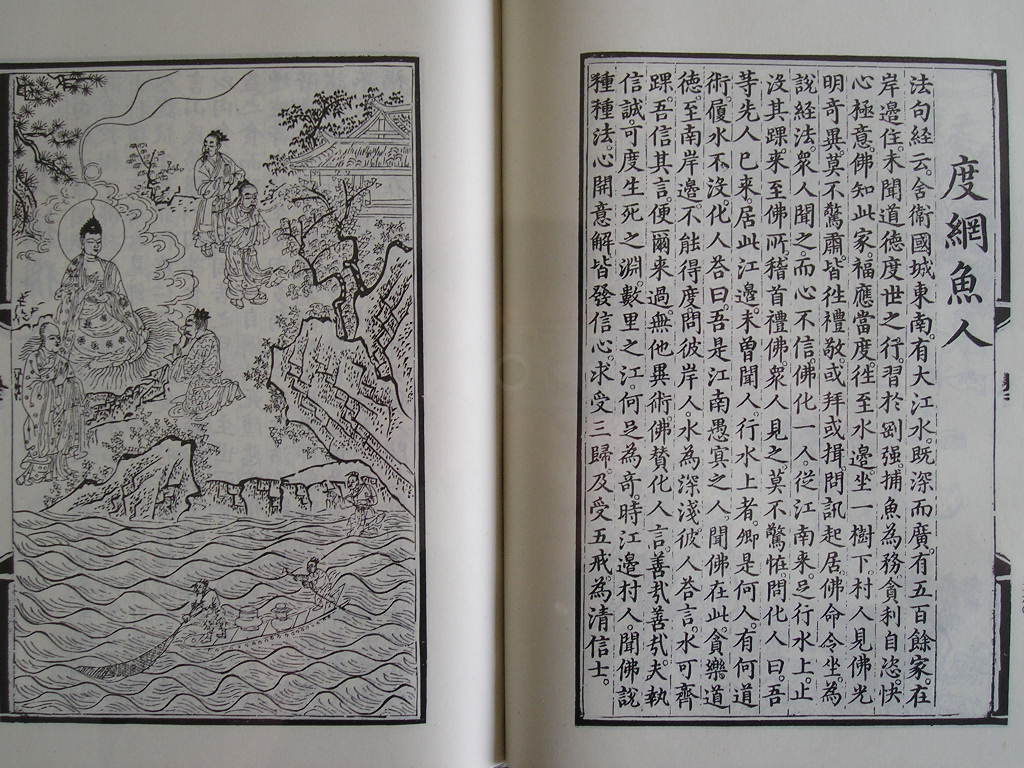 度網魚人
法句經云。舍衛國城東南。有大江水。既深而廣。有五百餘家。在
岸邊住。未聞道德度世之行。習於剛强。捕魚為務。貪利自恣。快
心極意。佛知此家。福應當度。往至水邊。坐一樹下。村人見佛光
明奇異。莫不驚肅。皆往禮敬。或拜或揖。問訊起居。佛命令坐。為
說經法。眾人聞之。而心不信。佛化一人。從江南来。足行水上。止
沒其踝。来至佛所。稽首禮佛。眾人見之。莫不驚怪。問化人曰。吾
等先人已来。居此江邊。未曾聞人。行水上者。卿是何人。有何道
術。履水不沒。化人荅曰。吾是江南愚真之人。聞佛在此。貪樂道
德。至南岸邊。不能得度。問彼岸人。水為深淺。彼人荅言。水可齊
踝。吾信其言。便爾来過。無他異術。佛賛化人言。善㢤善㢤。夫執
信誠。可度生死之淵。數里之江。何足為奇。時江邊村人。聞佛說
種種法。心開意解。皆發信心。求受三歸。及受五戒。為清信士。